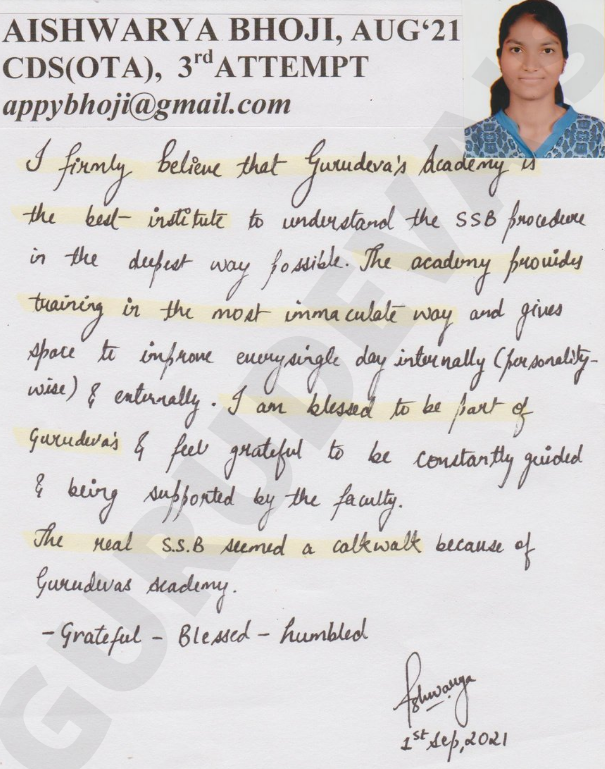 AISHWARYA BHOJI, AUG‘21
CDS(OTA), 3rd ATTEMPT
appybhoji@gmail.com
I firmly believe that Gurudeva's Academy is
the best institute to understand the SSB procedure
in the deepest way possible. The academy provides
training in the most immaculate way and gives
space to improve everysingle day internally (personality-
wise) & externally. I am blessed to be part of
Gurudeva's & feel grateful to be constantly guided
& being supported by the faculty.
The real S.S.B seemed a calkwalk because of
Gurudevas Academy.
- Grateful - Blessed - humbled
Aishwarya
1st Sep, 2021
GURUDEVAS